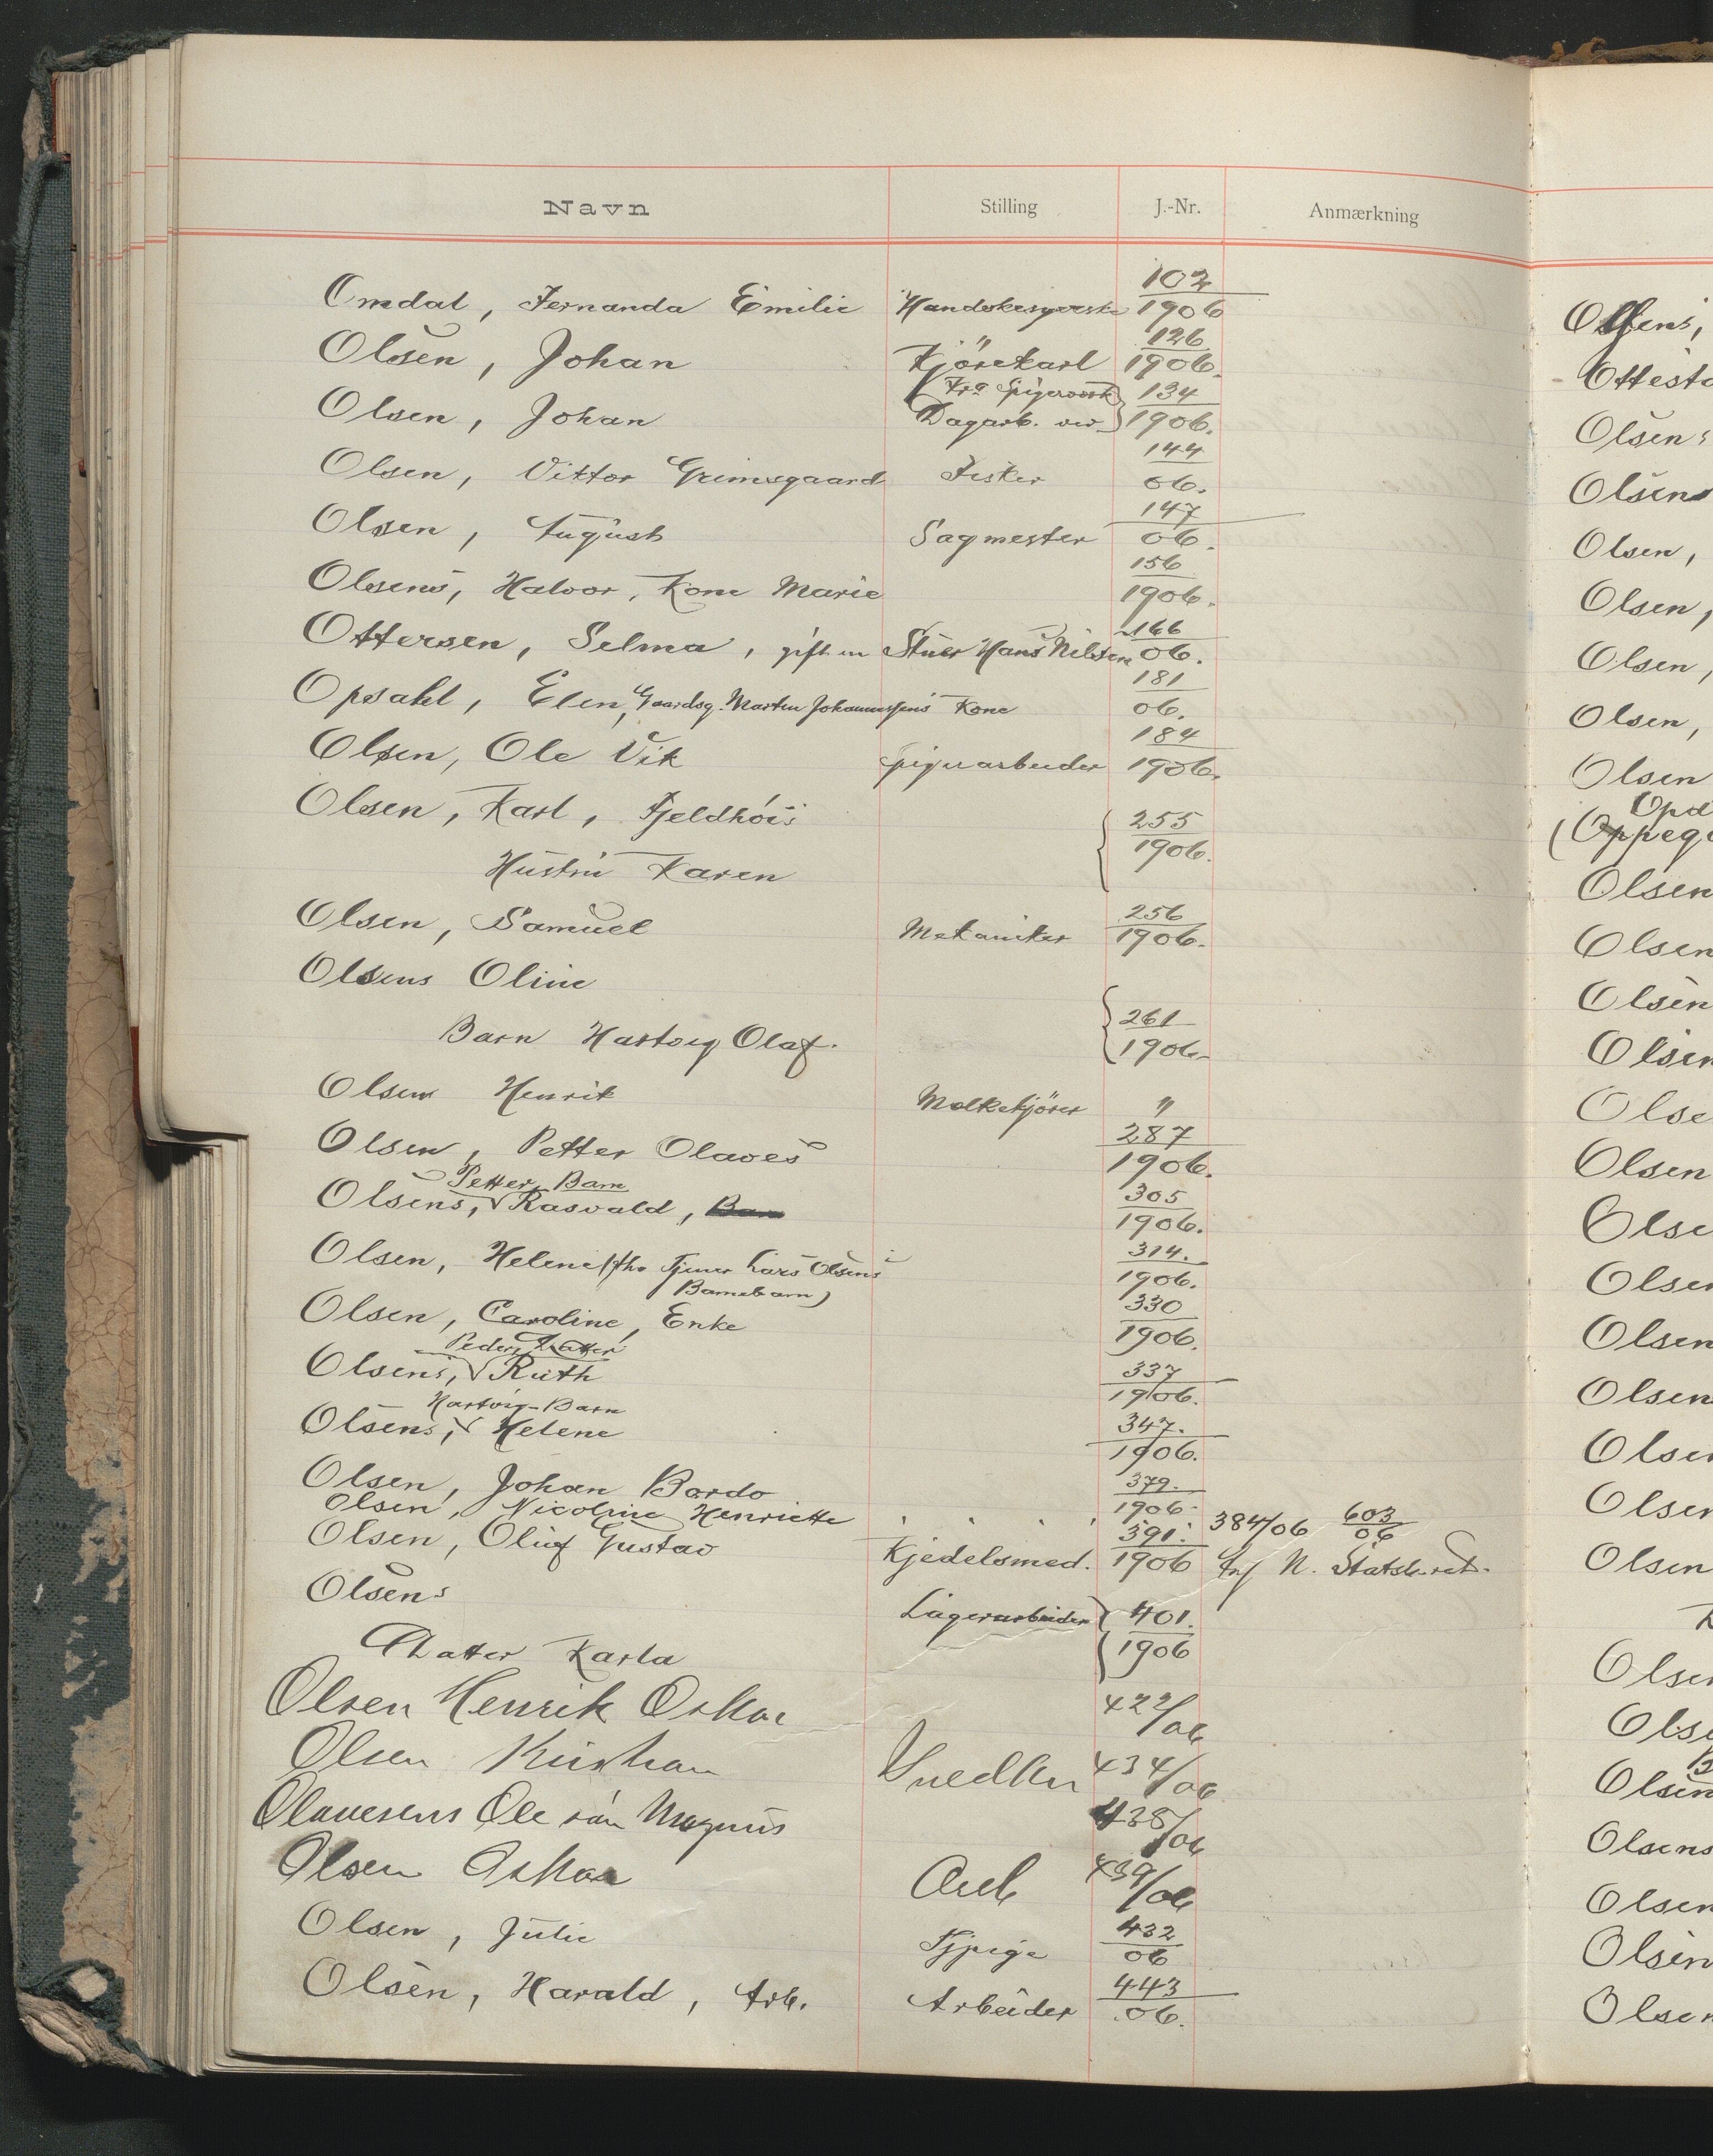 Navn Stilling J.-Nr. Anmærkning
Omdal, Fernanda Emilie Handskesyerske 102/1906
Olsen, Johan Kjörekarl 126/1906.
Olsen, Johan Dagarb. ved Kra Spigerverk 134/1906.
Olsen, Viktor Grimsgaard Fisker 144/06.
Olsen, August Sagmester 147/06.
Olsens, Halvor, Kone Marie 156/1906.
Ottersen, Selma, gift m Stuer Hans Nilsen 166/06.
Opsahl, Elen, Gaardsg. Martin Johannessens Kone 181/06.
Olsen, Ole Vik Spigerarbeider 184/1906.
Olsen, Karl, Fjeldhöi 255/1906.
Hustru Karen
Olsen, Samuel Mekaniker 256/1906.
Olsens Oline
Barn Hartvig Olaf. 261/1906
Olsen Henrik Melkekjörer "
Olsen, Petter Olaves 287/1906.
Petter, Barn
Olsens, Rasvald, 305/1906.
Olsen, Helene (fhv Tjener Lars Olsens 314./1906.
Barnebarn)
Olsen, Caroline, Enke 330/1906.
Peder, Datter
Olsens, Ruth 337/1906.
Hartvig - Barn
Olsens, Helene 347./1906.
Olsen, Johan Bardo 379./1906.
Olsen, Nicoline Henriette 384/06 603/06
Olsen, Oluf Gustav Kjedelsmed. 391./1906 N.
Olsens Lagerarbeider 401./1906
Datter Karla
Olsen Henrik Oskar 422/06
Olsen Kristian Snedker 434/06
Olavesens Ole sön Magnus 438/06
Olsen Oskar Arb 439/06
Olsen, Julie Tjpige 432/06
Olsen, Harald, Arb. Arbeider 443/06.
Ottesta
Olsens
Olsens
Olsen,
Olsen,
Olsen,
Olsen,
Olsen
Opd
(Oppeg
Olsen
Olsen
Olsen
Olsen
Olse
Olsen
Olse
Olsen
Olsen
Olsen
Olsen
Olsen
Olsen
Olsen
Olse
Olsen
Olsens
Olsen
Olsen
Olsen